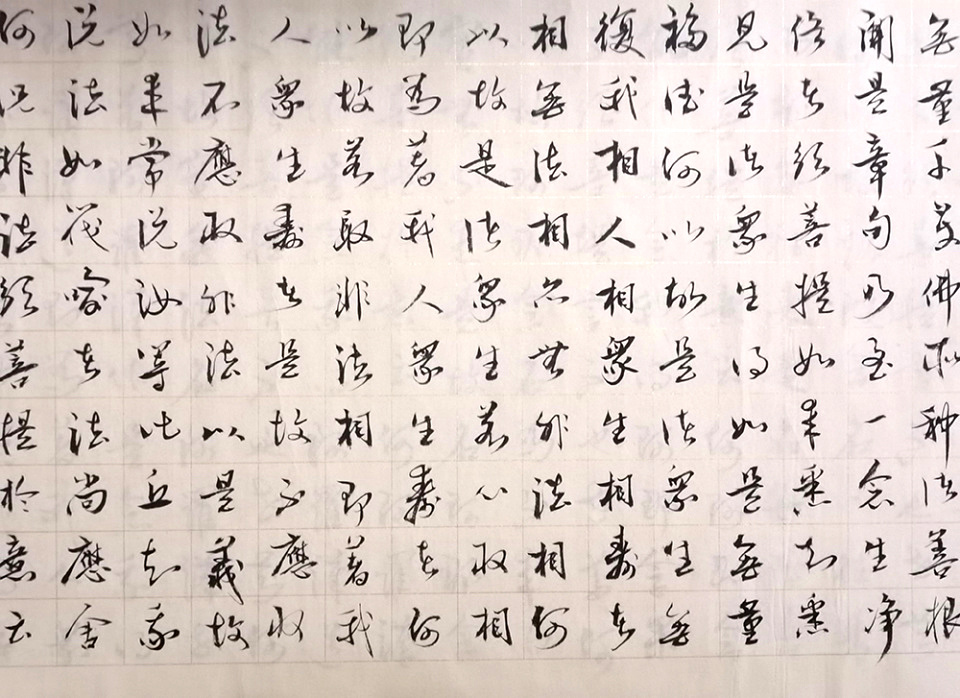 無量千萬佛所種諸善根
聞是章句乃至一念生净
信者須菩提如來悉知悉
見是諸衆生得如是無量
福德何以故是諸衆生無
復我相人相衆生相壽者
相無法相亦無非法相何
以故是諸衆生若心取相
即為著我人衆生壽者何
以故若取非法相即著我
人衆生壽者是故不應取
法不應取非法以是義故
如來常說汝等比丘知我
說法如筏喻者法尚應舍
何況非法須菩提於意云